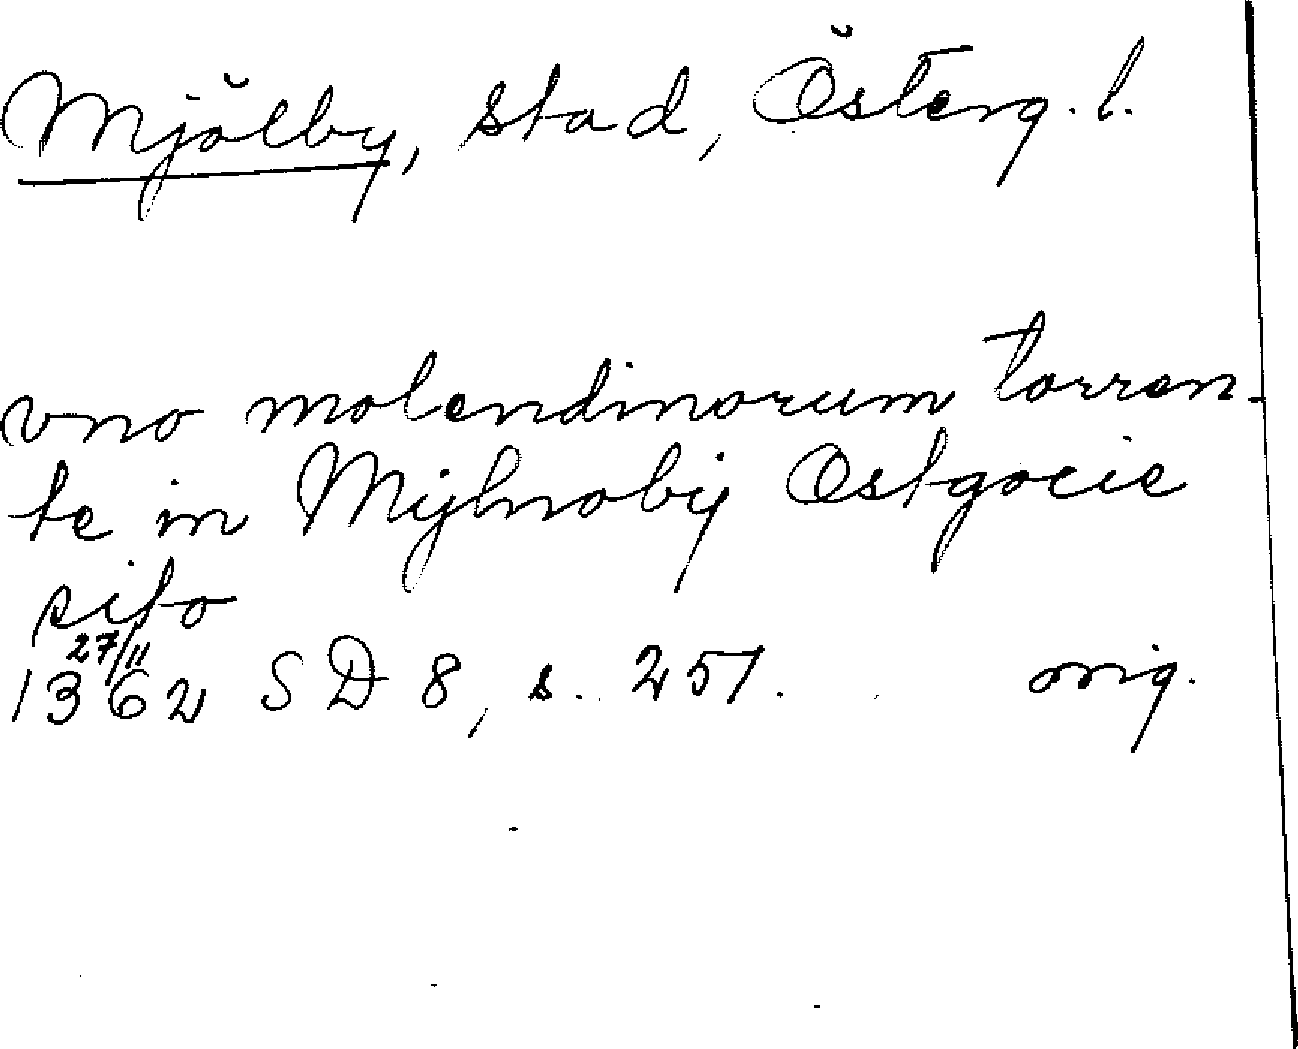 Mjölby, stad, Österg. l.
vno molendinorum torren-
te in Mijlnobij Ostgocie
sito
27/11
1362 SD 8, s. 251. orig.